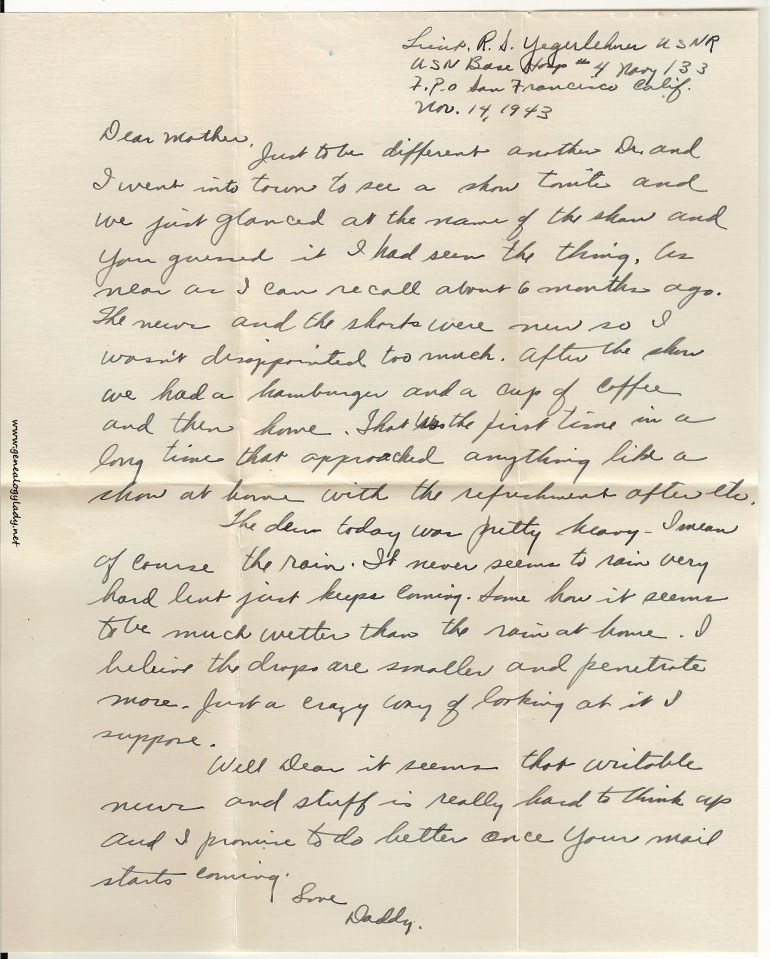 Lieut. R. S. Yegerlehner USNR
USN Base Hosp #4 Navy 133
F.P.O San Francisco Calif.
Nov. 14, 1943
Dear Mother,
Just to be different another Dr. and
I went into town to see a show tonite and
we just glanced at the name of the show and
you guessed it I had seen the thing, As
near as I can recall about 6 months ago.
The news and the shorts were new so I
wasn't disappointed too much. After the show
we had a hamburger and a cup of coffee
and then home. That was the first time in a
long time that approached anything like a
show at home with the refreshment after etc.
The dew today was pretty heavy - I mean
of course the rain. It never seems to rain very
hard but just keeps coming. Some how it seems
to be much wetter than the rain at home. I
beleive the drops are smaller and penetrate
more. Just a crazy way of looking at it I
suppose.
Well Dear it seems that writable
news and stuff is really hard to think up
and I promise to do better once your mail
starts coming.
Love
Daddy.
www.genealogylady.net